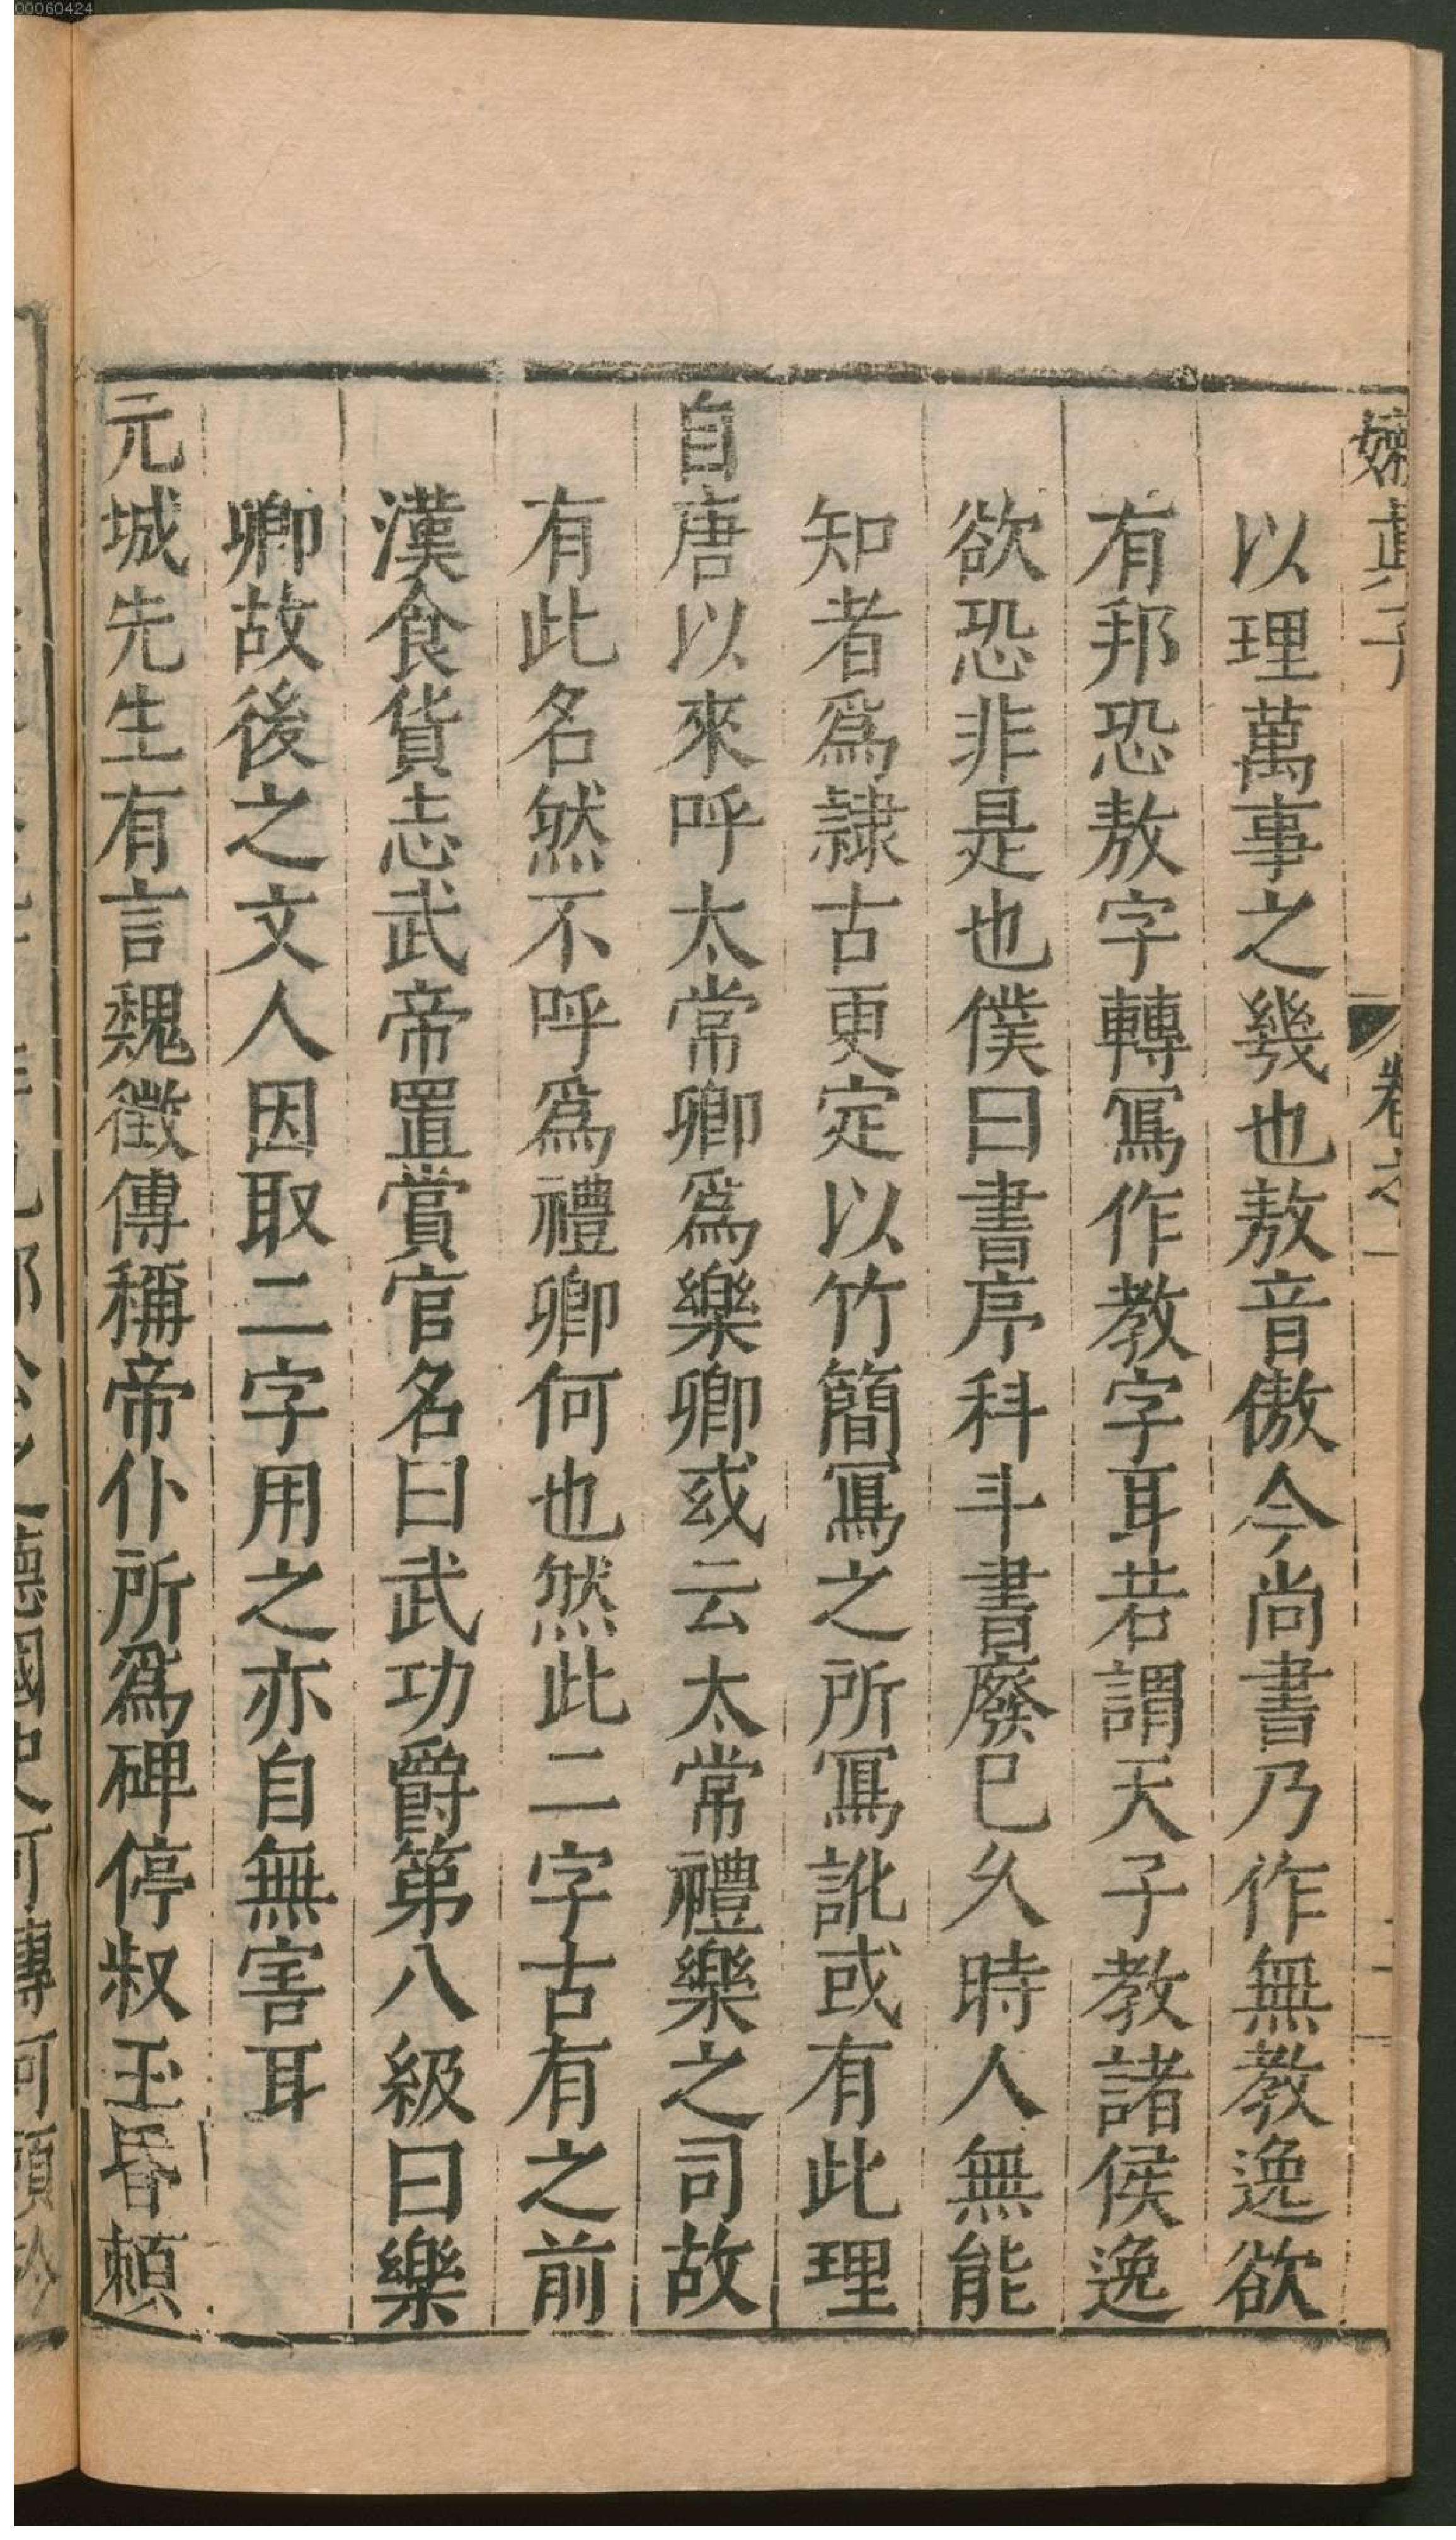 00060424
嬾真子 卷之一
以理萬事之幾也敖音傲今尚書乃作無教逸欲
有邦恐敖字轉寫作教字耳若謂天子教諸侯逸
欲恐非是也僕曰書序科斗書廢已久時人無能
知者爲隸古更定以竹簡寫之所寫訛或有此理
自唐以來呼太常卿爲樂卿或云太常禮樂之司故
有此名然不呼爲禮卿何也然此二字古有之前
漢食貨志武帝置賞官名曰武功爵第八級曰樂
卿故後之文人因取二字用之亦自無害耳
元城先生有言魏徵傳稱帝仆所爲碑停叔玉昏頼